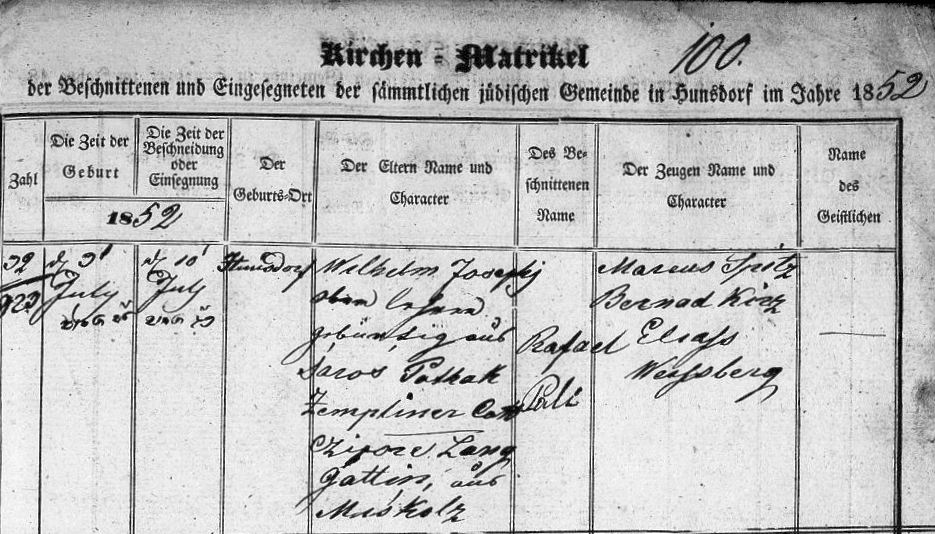 100.
Kirchen - Matrikel
der Beschnittenen und Eingesegneten der sämmtlichen jüdischen Gemeinde in Hunsdorf im Jahre 1852
Zahl
Die Zeit der
Geburt
Die Zeit der
Beschneidung
oder
Einsegnung
1852
Der
Geburts-Ort
Der Eltern Name und
Character
Des Be-
schnittenen
Name
Der Zeugen Name und
Character
Name
des
Geistlichen
32
July
July
Hunsdorf
Wilhelm Josephy
gebürtig aus
Saros Pathak
Zempliner Com
Czipore Lang
Gattin, aus
Miskolz
Rafael
Marcus Spitz
Bernad
Eliass
Weissberg